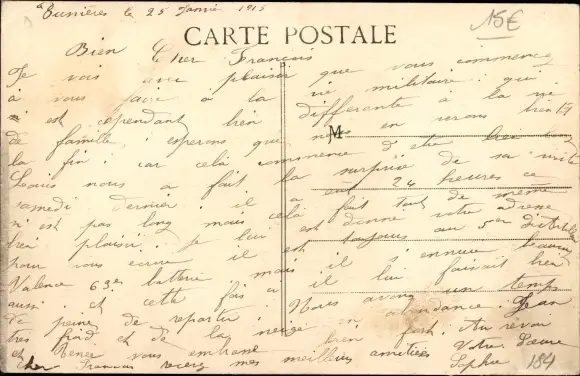 Eunières le 25 Janvié 1915
15€
CARTE POSTALE
Bien Cher François
Je vois avec plaisir que vous commencez
à vous faire à la vie militaire qui
n est cependant bien differente à la vie
de famille, esperons que nous en verons bientôt
la fin : car celà commence d etre bien long
Louis nous a fait la surprise de sa visite
samedi dernier : il a eut 24 heures ce
n est pas long mais celà fait tout de meme
bien plaisir. je lui est donné votre adresse
pour vous ecrire il est toujours au 5er d'artillerie
Valence 63e batterie mais il s ennuie
aussi : et cette fois il lui faisait bien
de peine de repartir Nous avons un temps
très froid et de la neige en abondance : Jean
et vous embrasse bien fort. Au revoir
cher François recevez mes meilleurs amitiées Votre Soeur
Sophie
M
184